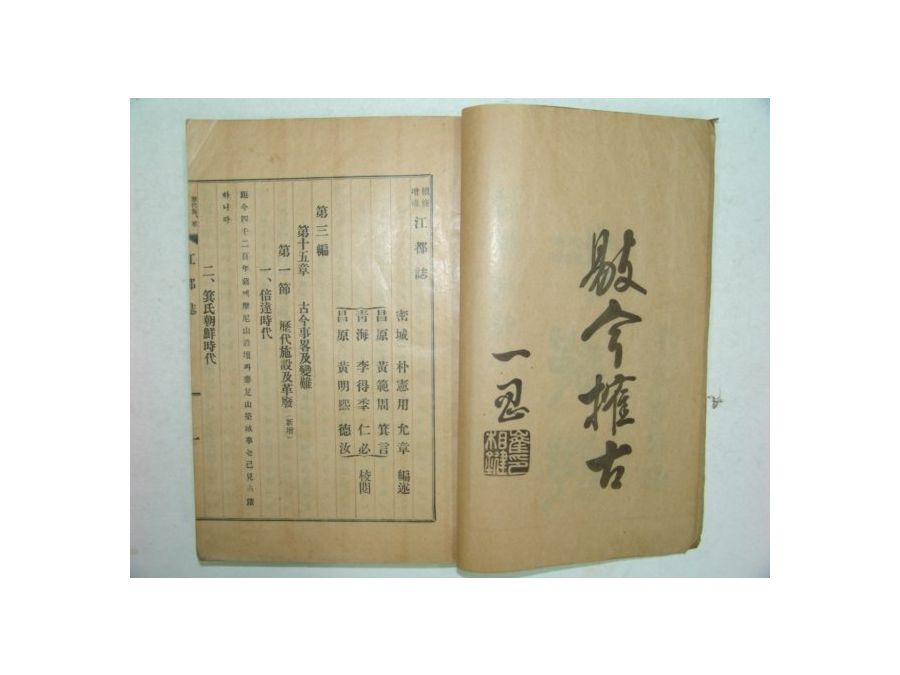 敭今搉古
一忍
江都誌
密城 朴憲用 允章 編述
昌原 黃範周 箕言
靑海 李得季 仁必 校閱
昌原 黃明熙 德汝
第三編
第十五章 古今事畧及變難
第一節 歷代施設及革廢(新增)
一、倍達時代
距今四千二百年前에摩尼山設壇과鼎足山築城事는已見古蹟
하니라
二、箕氏朝鮮時代
江都誌 一